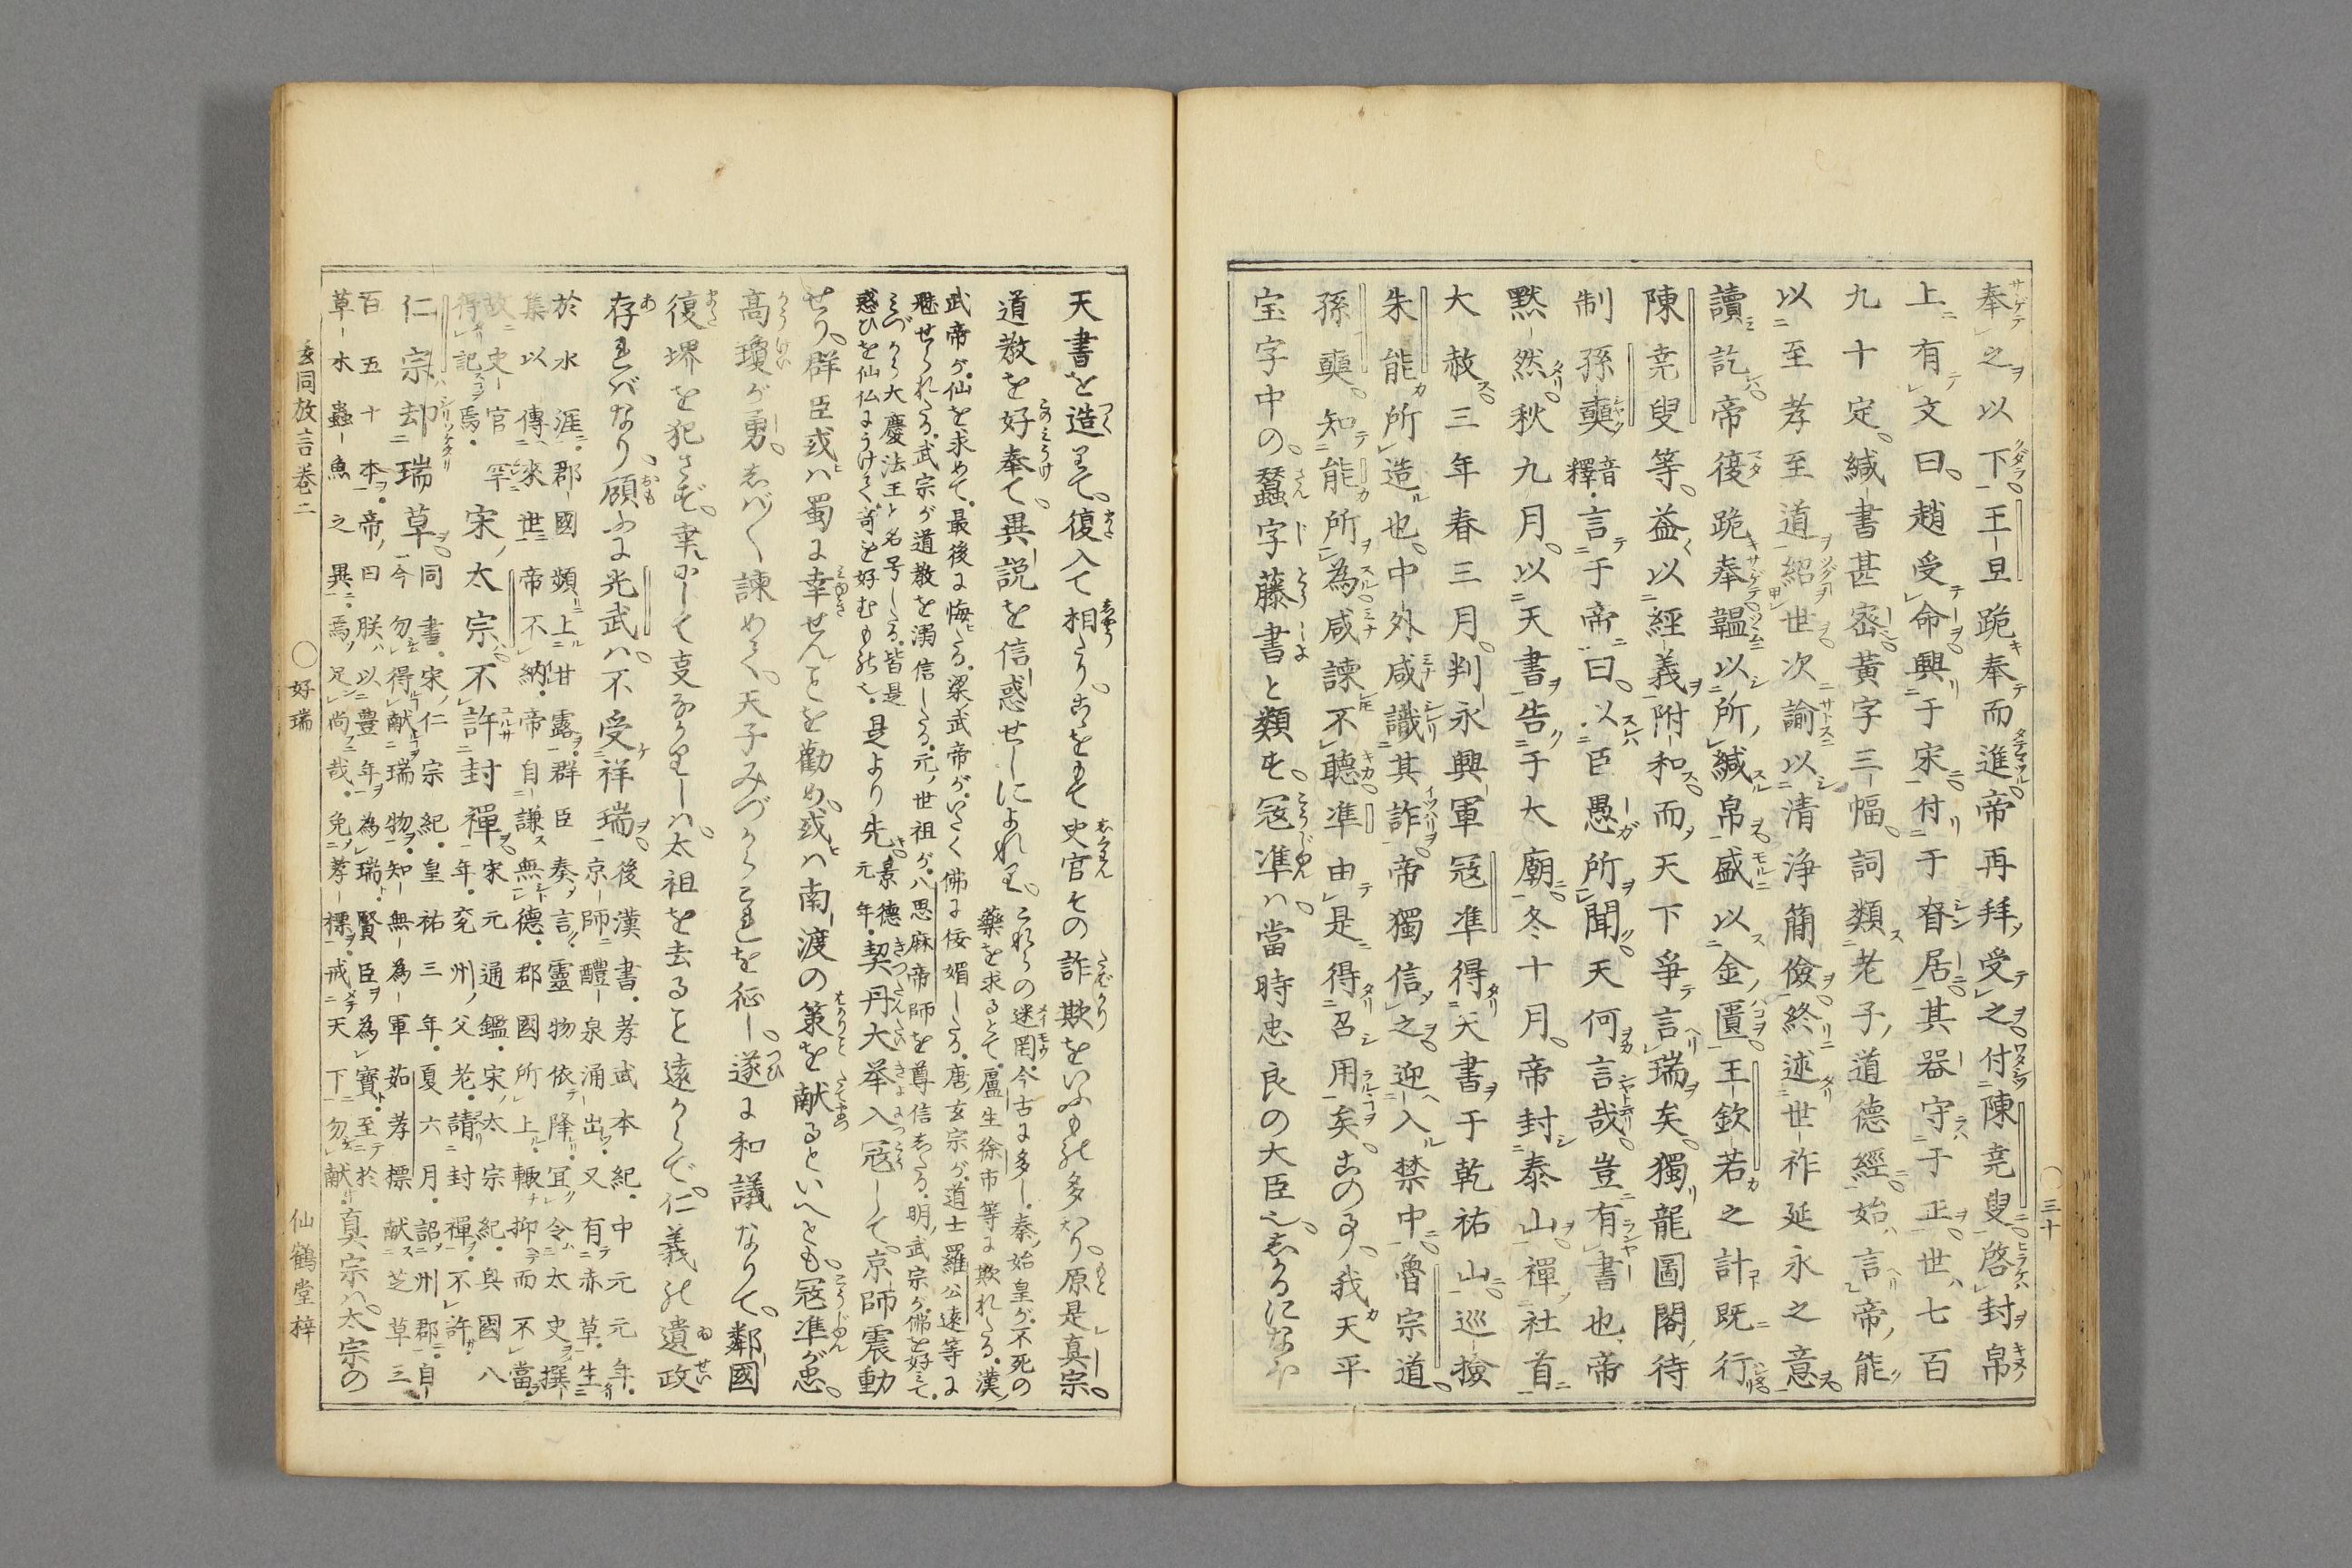 奉之以下王旦跪奉而進帝再拜受之付陳尭叟啓封帛
上有文曰趙受命興于宋付于眘居其器守于正世七百
九十定緘書甚宻黄字三幅詞類老子道德經始言帝能
以至孝至道紹世次諭以清浄簡儉終述世祚延永之意
讀訖帝復跪奉韞以所緘帛盛以金匱王欽若之計既行
陳尭叟等益以經義附和而天下爭言瑞矣獨龍圖閣待
制孫奭音釋言于帝曰以臣愚所聞天何言哉豈有書也帝
黙然秋九月以天書告于大廟冬十月帝封泰山禪社首
大赦三年春三月判永興軍冦凖得天書于乾祐山巡撿
朱能所造也中外咸識其詐帝獨信之迎入禁中魯宗道
孫奭知能所為咸諫不聽凖由是得召用矣この事我天平
宝字中の蠶字藤書と類す冦凖ハ當時忠良の大臣也しかるになほ
〇三十
天書を造りて復入て相たりこをもて史官その詐欺をいふもの多かり原是真宗
道教を好奉て異説を信惑せしによれりこれらの迷罔今古に多し秦始皇が不死の
藥を求るとて廬生徐市等に欺れたる漢
武帝が仙を求めて最後に悔たる梁武帝がいたく佛に佞媚したる唐玄宗が道士羅公遠等に
魅せられたる武宗が道教を溺信したる元世祖が八思麻帝師を尊信したる明武宗が佛を好みて
みづから大慶法王と名号したる皆是
惑ひを仙仏にうけて竒を好むもの也是より先景德元年契丹大举入冦して京師震動
せり群臣或ハ蜀に幸せんことを勸め或ハ南渡の策を献るといへとも冦凖が忠
高瓊が勇しばしば諫めて天子みづからこれを征し遂に和議なりて鄰國
復堺を犯さず幸にして支なかりしハ太祖を去ること遠からで仁義の遺政
存ればなり顧ふに光武ハ不受祥瑞後漢書孝武本紀中元元年
京師醴泉涌出又有赤草生
於水涯郡國頻上甘露群臣奏言靈物依降宜令太史撰
集以傳來世帝不納帝自謙無德郡國所上輙抑而不當
故史官罕
得記焉宋太宗不許封禪宋元通鑑宋太宗紀與國八
年兖州父老請封禪不許
仁宗却瑞草同書宋仁宗紀皇祐三年夏六月詔州郡自
今勿得献瑞物知無為軍茹孝標献芝草三
百五十本帝曰朕以豊年為瑞賢臣為寳至於
草木蟲魚之異焉足尚哉免孝標戒天下勿献真宗ハ太宗の
玄同放言巻二
〇好瑞
仙鶴堂梓